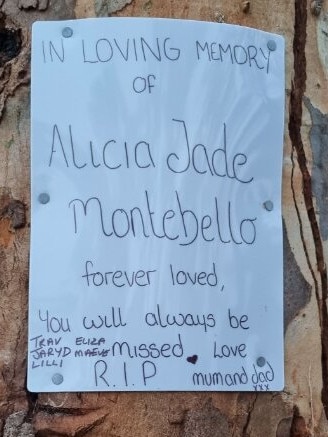 IN LOVING MEMORY
OF
Alicia Jade
Montebello
forever loved,
You will always be
missed. Love
mum and dad
xxx
R.I.P
TRAV ELIZA
JARYD MAEVE
LILLI